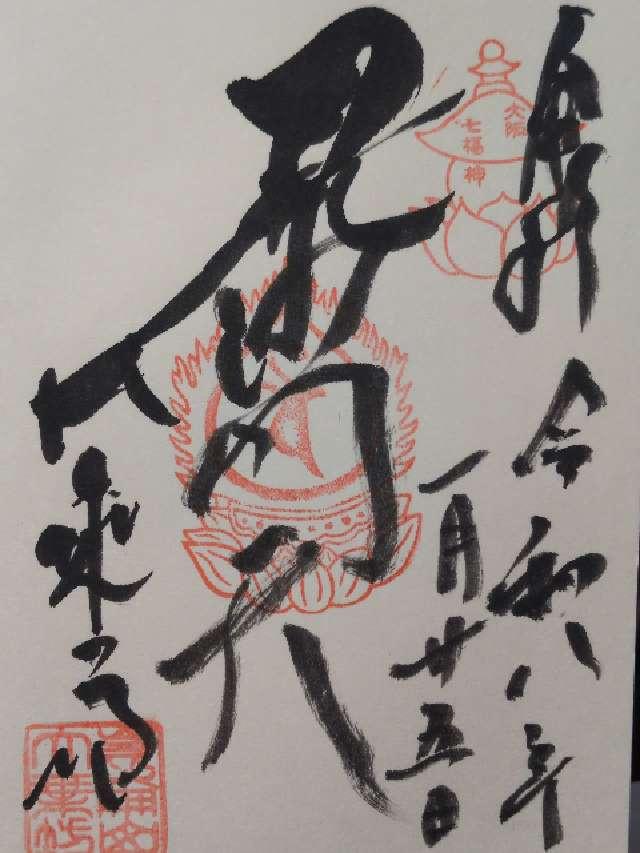 奉拝
大阪
七福神
令和八年
一月廿五日
毘沙門天
大乗坊